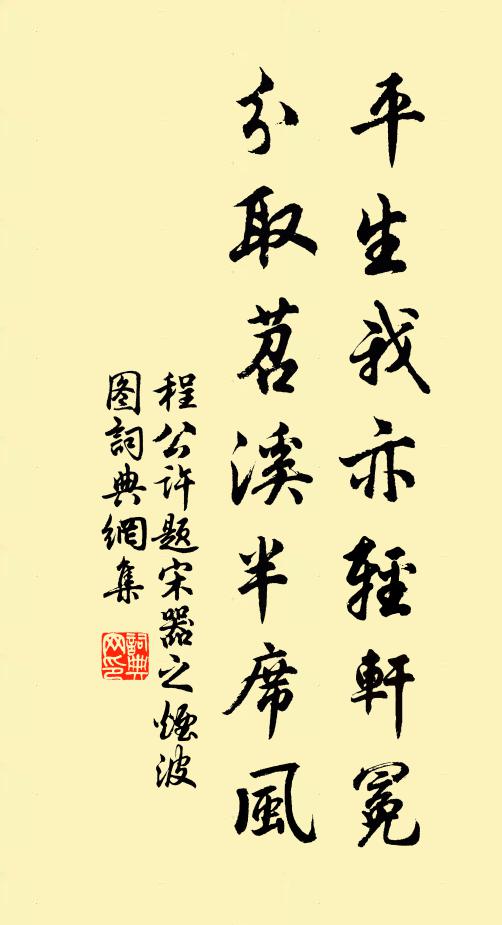 平生我亦輕軒冕
分取苕溪半席風
程公许题宋器之煙波
图詞典網集
詞典網印